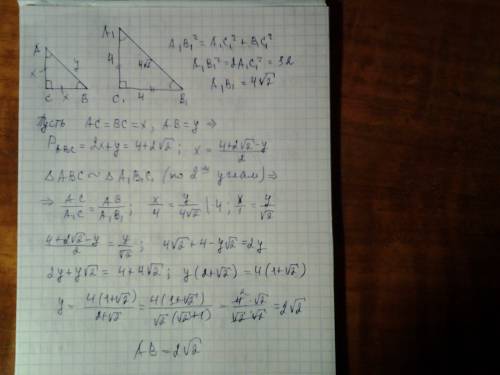 A
x
y
C
x
B
A₁
4
4√2
C₁
4
B₁
A₁B₁² = A₁C₁² + B₁C₁²
A₁B₁² = 2A₁C₁² = 32
A₁B₁ = 4√2
Пусть AC = BC = x, AB = y ⇒
P_ABC = 2x + y = 4 + 2√2 ; x = (4+2√2−y)/2
△ABC ∼ △A₁B₁C₁ (по 2ᵘᵐ углам) ⇒
⇒ AC/A₁C₁ = AB/A₁B₁ ; x/4 = y/4√2 | 4 ; x/1 = y/√2
(4+2√2−y)/2 = y/√2 ; 4√2 + 4 − y√2 = 2y
2y + y√2 = 4 + 4√2 ; y(2+√2) = 4(1+√2)
y = 4(1+√2)/(2+√2) = 4(1+√2)/(√2(√2+1)) = 4·√2/(√2·√2) = 2√2
AB = 2√2